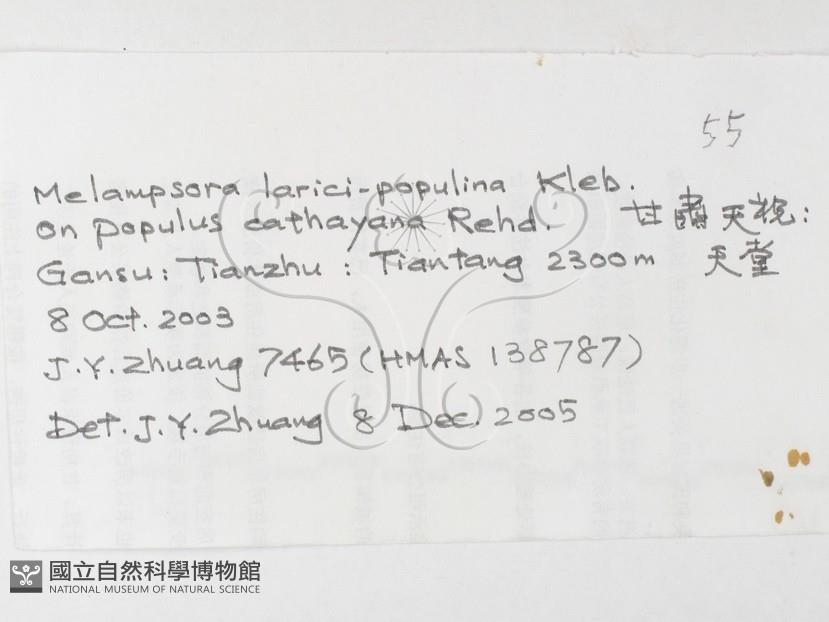 55
Melampsora larici-populina Kleb.
on Populus cathayana Rehd. 甘肅天祝:
Gansu: Tianzhu: Tiantang 2300m 天堂
8 Oct. 2003
J.Y. Zhuang 7465 (HMAS 138787)
Det. J.Y. Zhuang 8 Dec. 2005
國立自然科學博物館
NATIONAL MUSEUM OF NATURAL SCIENCE